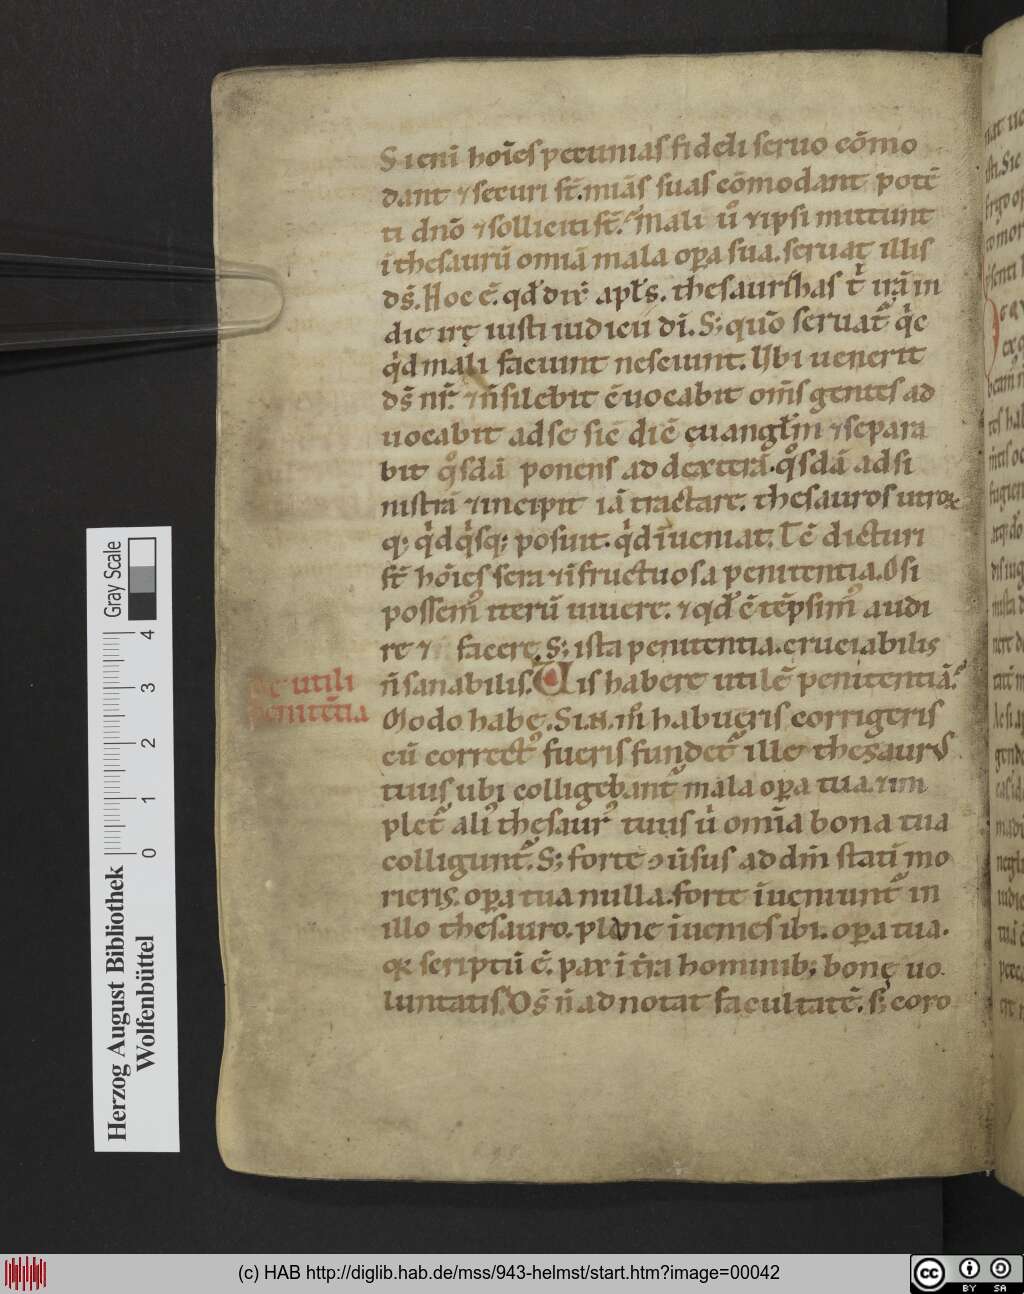 Si eni hoīes pecunias fideli seruo cōmo
dant ⁊ securi st̄. aīas suas cōmodant potē
ti dnō ⁊ solliciti st̄. Mali ū ⁊ ipsi mittunt
ī thesaurū omīa mala oꝑa sua. seruat illis
ds̄. Hoc ē. qd̄ dix̄ apl̄s. thesaurizas t̄ irā in
die irę iusti iudicii dī. S; quō seruat̄ qͥ
qͥd mali faciunt nesciunt. Ubi uenerit
ds̄ nr̄. ⁊ n̄ silebit cū uocabit om̄s gentes ad
uocabit ad se sic dic̄ euangl̄m ⁊ separa
bit qͦsdā ponens ad dexterā. qͦsdā ad si
nistrā ⁊ incipit iā tractare. thesauros utroꝝ
q; qͥd qͥsq; posuit. qͥd īueniat. Tc̄ dicturi
st̄ hōies sera ⁊ īfructuosa penitentia. O si
possem᷒ iterū uiuere. ⁊ qd̄ cōtēpsim᷒ audi
re ⁊ facere. S; ista penitentia. cruciabilis
n̄ sanabilis. Uis habere utilē penitentiā.
De utili
penitētia
Modo habe. Si .n. m̊ habueris corrigeris
cū correct᷒ fueris fundet̄ ille thesaurus
tuus ubi colligebant̄ mala oꝑa tua. ⁊ im
plet̄ ali᷒ thesaur᷒ tuus ū omīa bona tua
colligunt̄. S; forte ꝯūsus ad dm̄ statī mo
rieris. oꝑa tua nulla. forte īueniunt̄ in
illo thesauro. plane īuenies ibi. oꝑa tua.
qꝛ scriptū ē. pax ī t̄ra hominib; bonę uo
luntatis. Ds̄ n̄ adnotat facultatē. s; coro
Herzog August Bibliothek
Wolfenbüttel
Gray Scale
0 1 2 3 4
(c) HAB http://diglib.hab.de/mss/943-helmst/start.htm?image=00042
cc BY SA